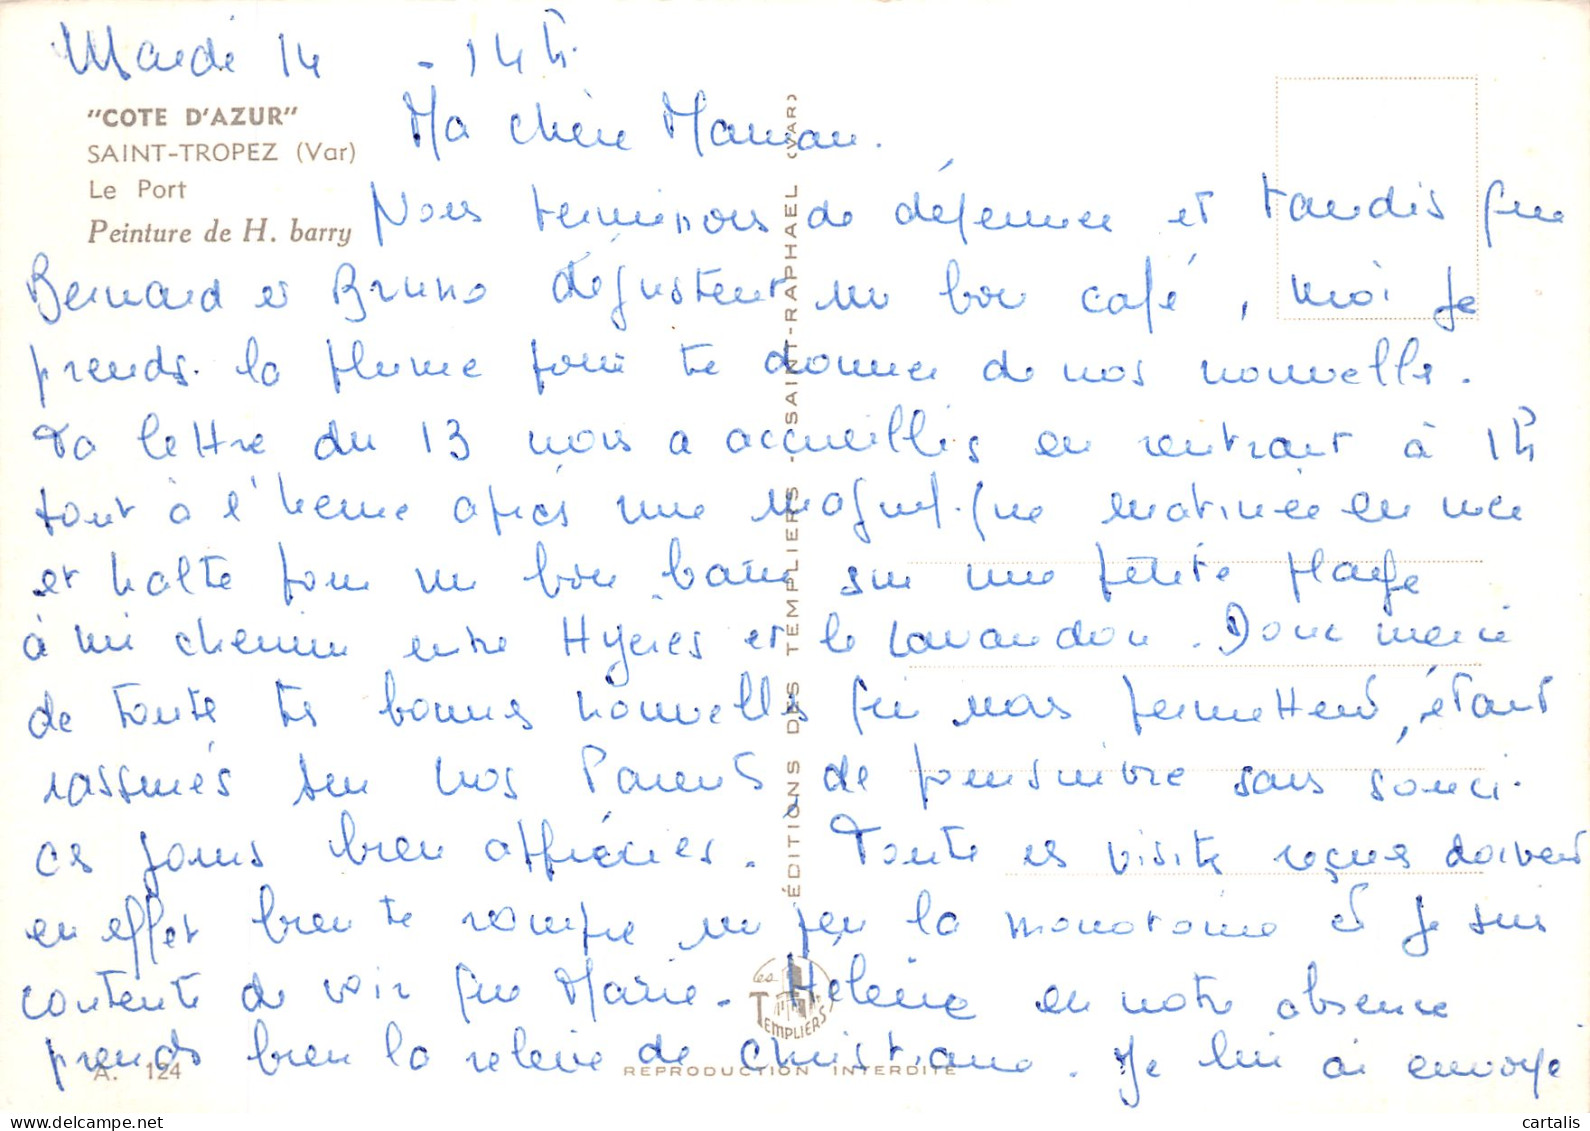 Mardi 14 - 14h.
"COTE D'AZUR"
SAINT-TROPEZ (Var)
Le Port
Peinture de H. barry
Ma chère Maman.
Nous terminons de déjeuner et tandis que
Bernard et Bruno dégustent un bon café, moi je
prends la plume pour te donner de nos nouvelles.
Ta lettre du 13 nous a accueillis en rentrant à 1h
tout à l'heure après une magnifique matinée en mer
et halte pour un bon bain sur une petite plage
à mi chemin entre Hyères et le Lavandou. Donc merci
de toute tes bonnes nouvelles qui nous permettent, étant
rassurés sur nos Parents de poursuivre sans souci
ces jours bien appréciés. Toute ces visites reçues doivent
en effet bien te rompre un peu la monotonie et je suis
contente de voir que Marie-Hélène en notre absence
prends bien la relève de Christiane. Je lui ai envoyé
ÉDITIONS DES TEMPLIERS - SAINT-RAPHAEL (VAR)
Les TEMPLIERS
A. 124
REPRODUCTION INTERDITE
www.delcampe.net
cartalis